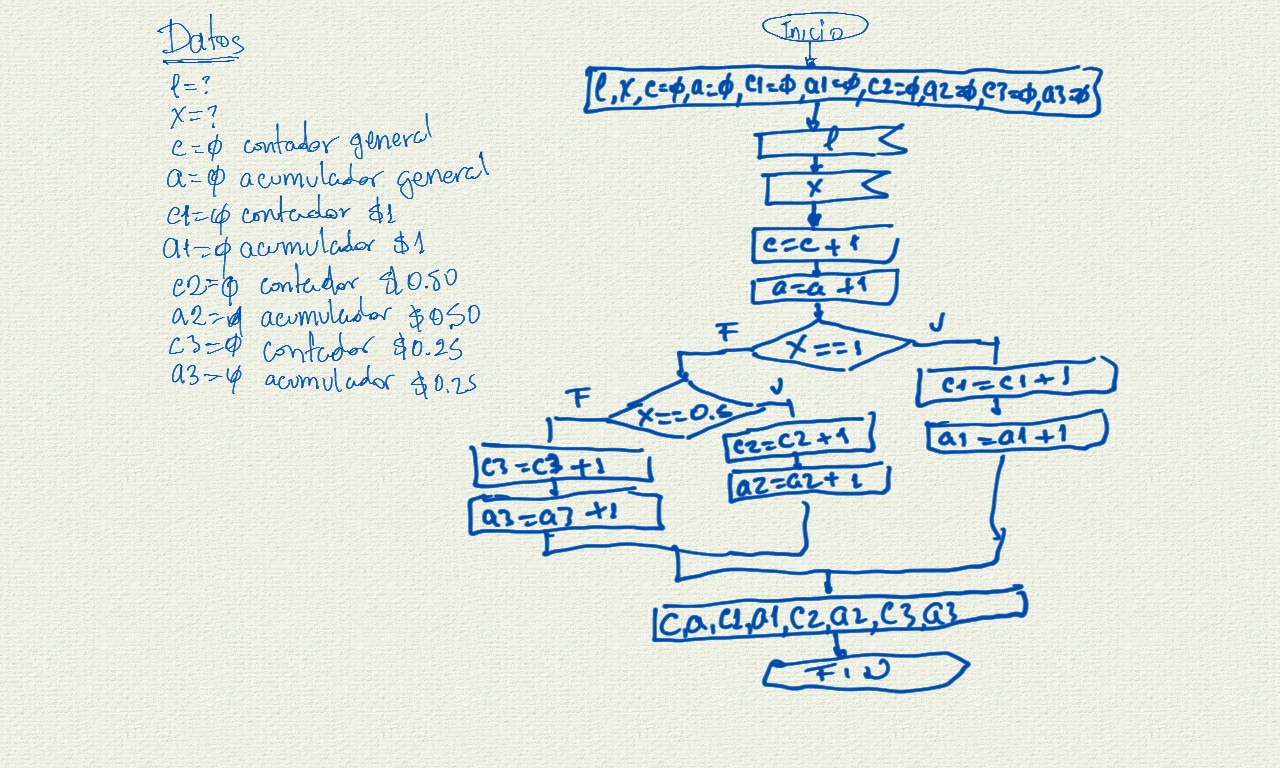 Datos
l=?
x=?
c=φ contador general
a=φ acumulador general
c1=φ contador $1
a1=φ acumulador $1
c2=φ contador $0.50
a2=φ acumulador $050
c3=φ contador $0.25
a3=φ acumulador $0.25
Inicio
l,x,c=φ,a=φ,c1=φ,a1=φ,c2=φ,a2=φ,c3=φ,a3=φ
l
x
c=c+1
a=a+1
F
x==1
V
c1=c1+1
a1=a1+1
F
x==0.5
V
c2=c2+1
a2=a2+1
c3=c3+1
a3=a3+1
C,a,c1,a1,c2,a2,c3,a3
FIN